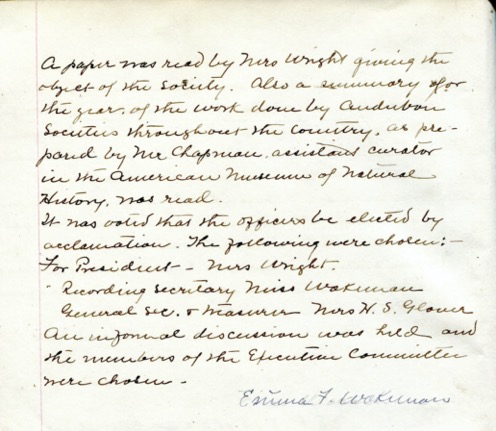 A paper was read by Mrs Wright giving the
object of the Society. Also a summary for
the year, of the work done by Audubon
Societies throughout the country, as pre-
pared by Mr Chapman, assistant curator
in the American Museum of Natural
History, was read.
It was voted that the officers be elected by
acclamation. The following were chosen:-
For President - Mrs Wright.
" Recording Secretary Miss Wakeman
General Sec. & Treasurer Mrs H. S. Glover
An informal discussion was held and
the members of the Executive Committee
were chosen -
Emma F. Wakeman